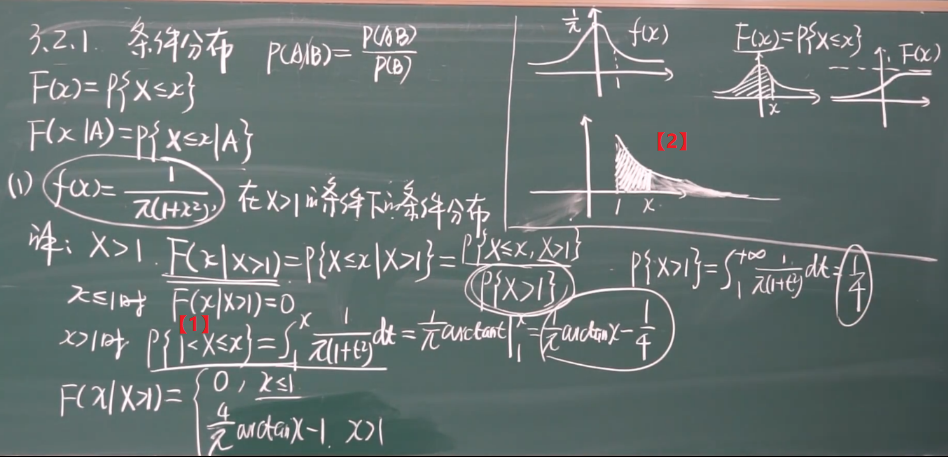 3.2.1. 条件分布 P(A|B)=P(AB)/P(B)
F(x)=P{X≤x}
F(x|A)=P{X≤x|A}
(1) f(x)=1/π(1+x²), 在X>1的条件下的条件分布
解: X>1. F(x|X>1)=P{X≤x|X>1}=P{X≤x, X>1}/P{X>1}
P{X>1}=∫₁^{+∞} 1/π(1+t²) dt=1/4
x≤1时 F(x|X>1)=0
【1】
x>1时 P{1<X≤x}=∫₁^x 1/π(1+t²) dt=1/π arctant|₁^x=1/π arctanx-1/4
F(x|X>1)={0, x≤1
4/π arctanx-1. x>1
1/π f(x)
1
F(x)=P{X≤x}
x
F(x)
【2】
1 x